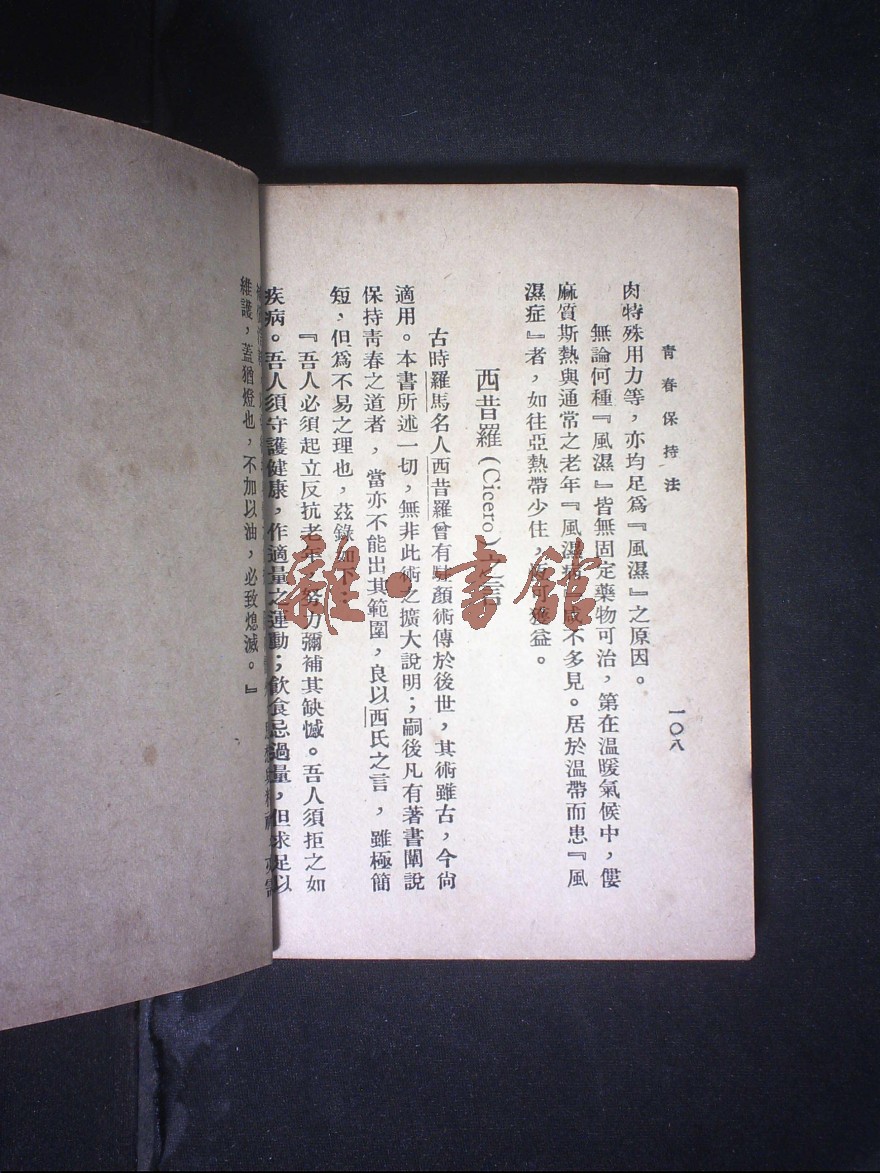 青春保持法
一〇八
肉特殊用力等，亦均足爲『風濕』之原因。
無論何種『風濕』皆無固定藥物可治，第在温暖氣候中，僂
麻質斯熱與通常之老年『風濕病』咸不多見。居於温帶而患『風
濕症』者，如往亞熱帶少住，可獲益。
西昔羅(Cicero)之言
古時羅馬名人西昔羅曾有駐顏術傳於後世，其術雖古，今尙
適用。本書所述一切，無非此術之擴大說明；嗣後凡有著書闡說
保持靑春之道者，當亦不能出其範圍，良以西氏之言，雖極簡
短，但爲不易之理也，茲錄如下：
『吾人必須起立反抗老年，努力彌補其缺憾。吾人須拒之如
疾病。吾人須守護健康，作適量之運動；飲食忌過量，但求足以
維護，蓋猶燈也，不加以油，必致熄滅。』
雜·書館